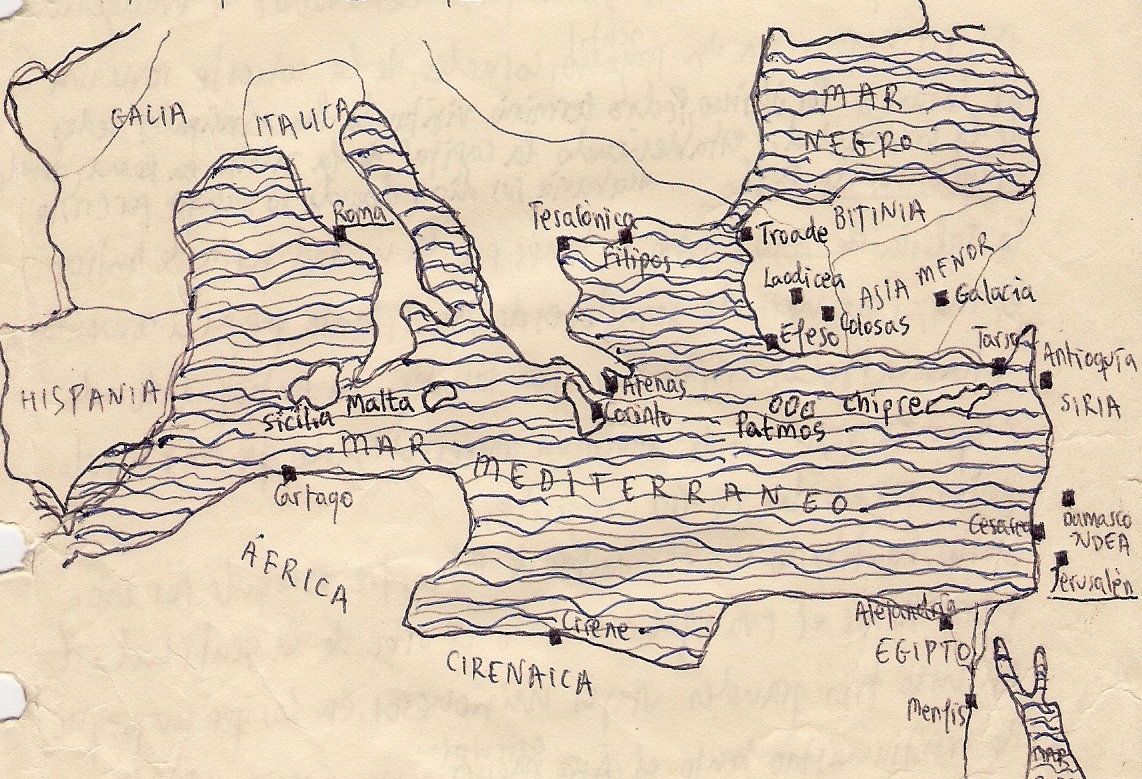 GALIA
ITALICA
MAR
NEGRO
Roma
Tesalónica
Filipos
Troade
BITINIA
Laodicea
ASIA MENOR
Galacia
Colosas
Efeso
Tarso
Antioquía
SIRIA
HISPANIA
Sicilia
Malta
Atenas
Corinto
Patmos
Chipre
MAR
MEDITERRANEO
Cartago
ÁFRICA
Cesarea
Damasco
Jerusalén
Cirene
CIRENAICA
Alejandría
EGIPTO
Menfis
MAR